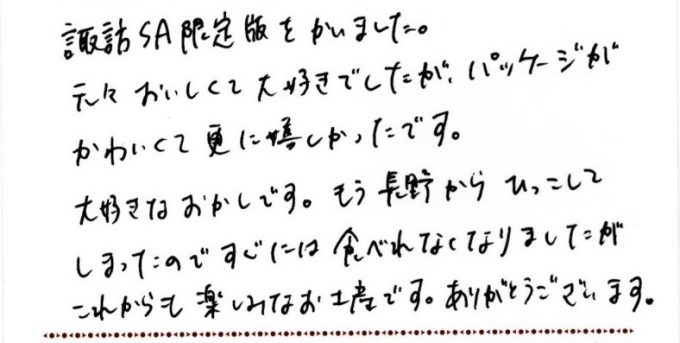 諏訪SA限定版をかいました。
元々おいしくて大好きでしたが、パッケージが
かわいくて更に嬉しかったです。
大好きなおかしです。もう長野からひっこして
しまったのですぐには食べれなくなりましたが
これからも楽しみなお土産です。ありがとうございます。